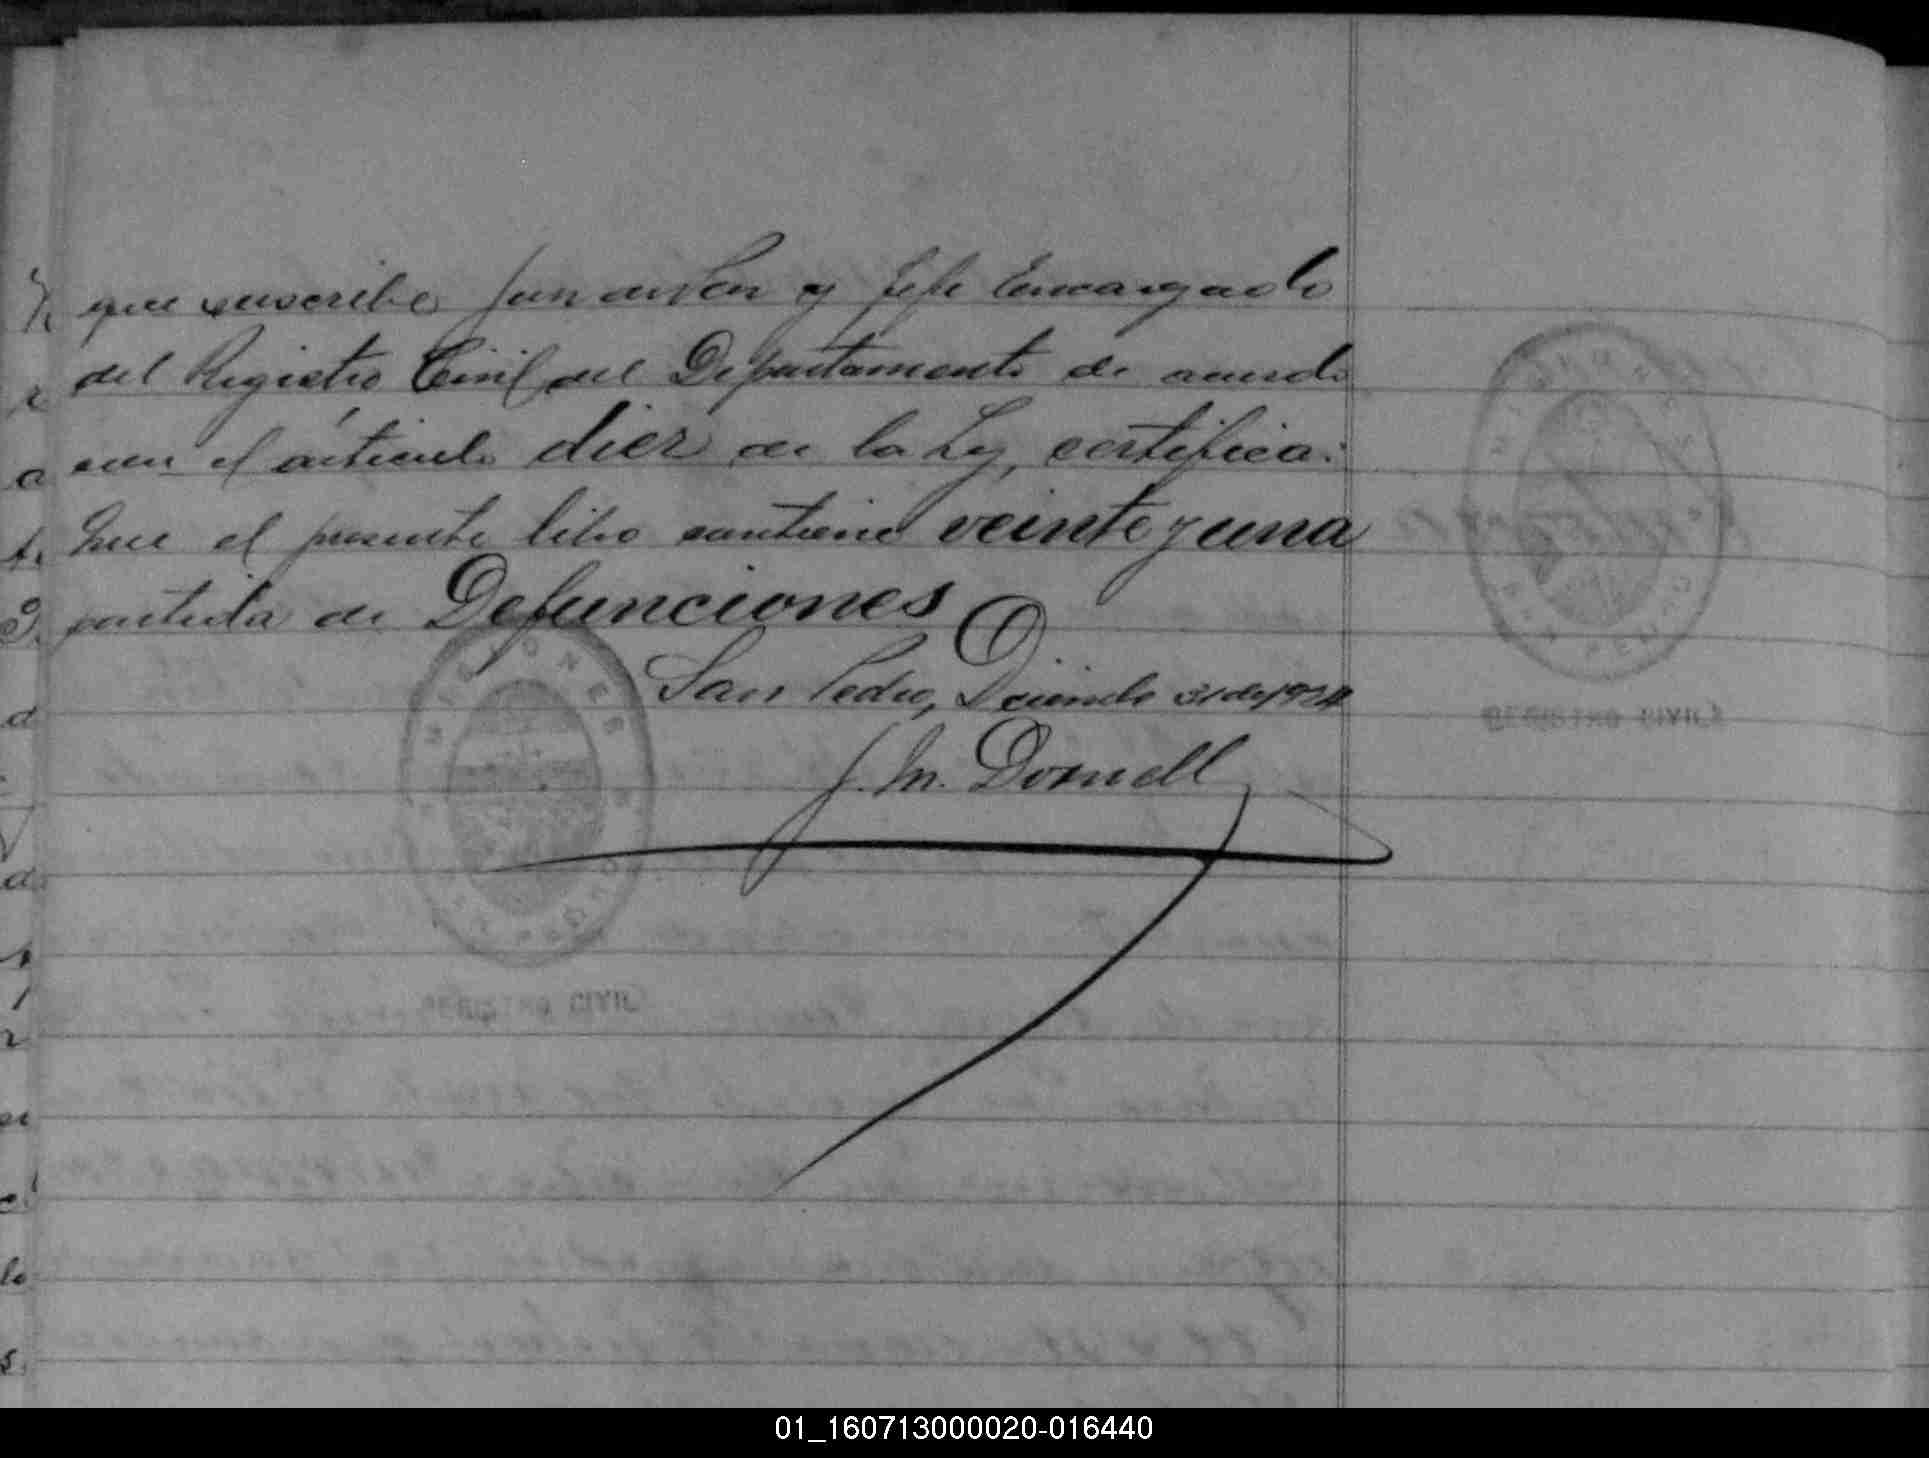 que suscribe Juez de Paz y Jefe Encargado
del Registro Civil del Departamento de acuerdo
con el artículo diez de la Ley, certifica:
Que el presente libro contiene veinte y una
partida de Defunciones
San Pedro, Diciembre 31 de
J. M.
MISIONES
REGISTRO CIVIL
REGISTRO CIVIL
01_160713000020-016440